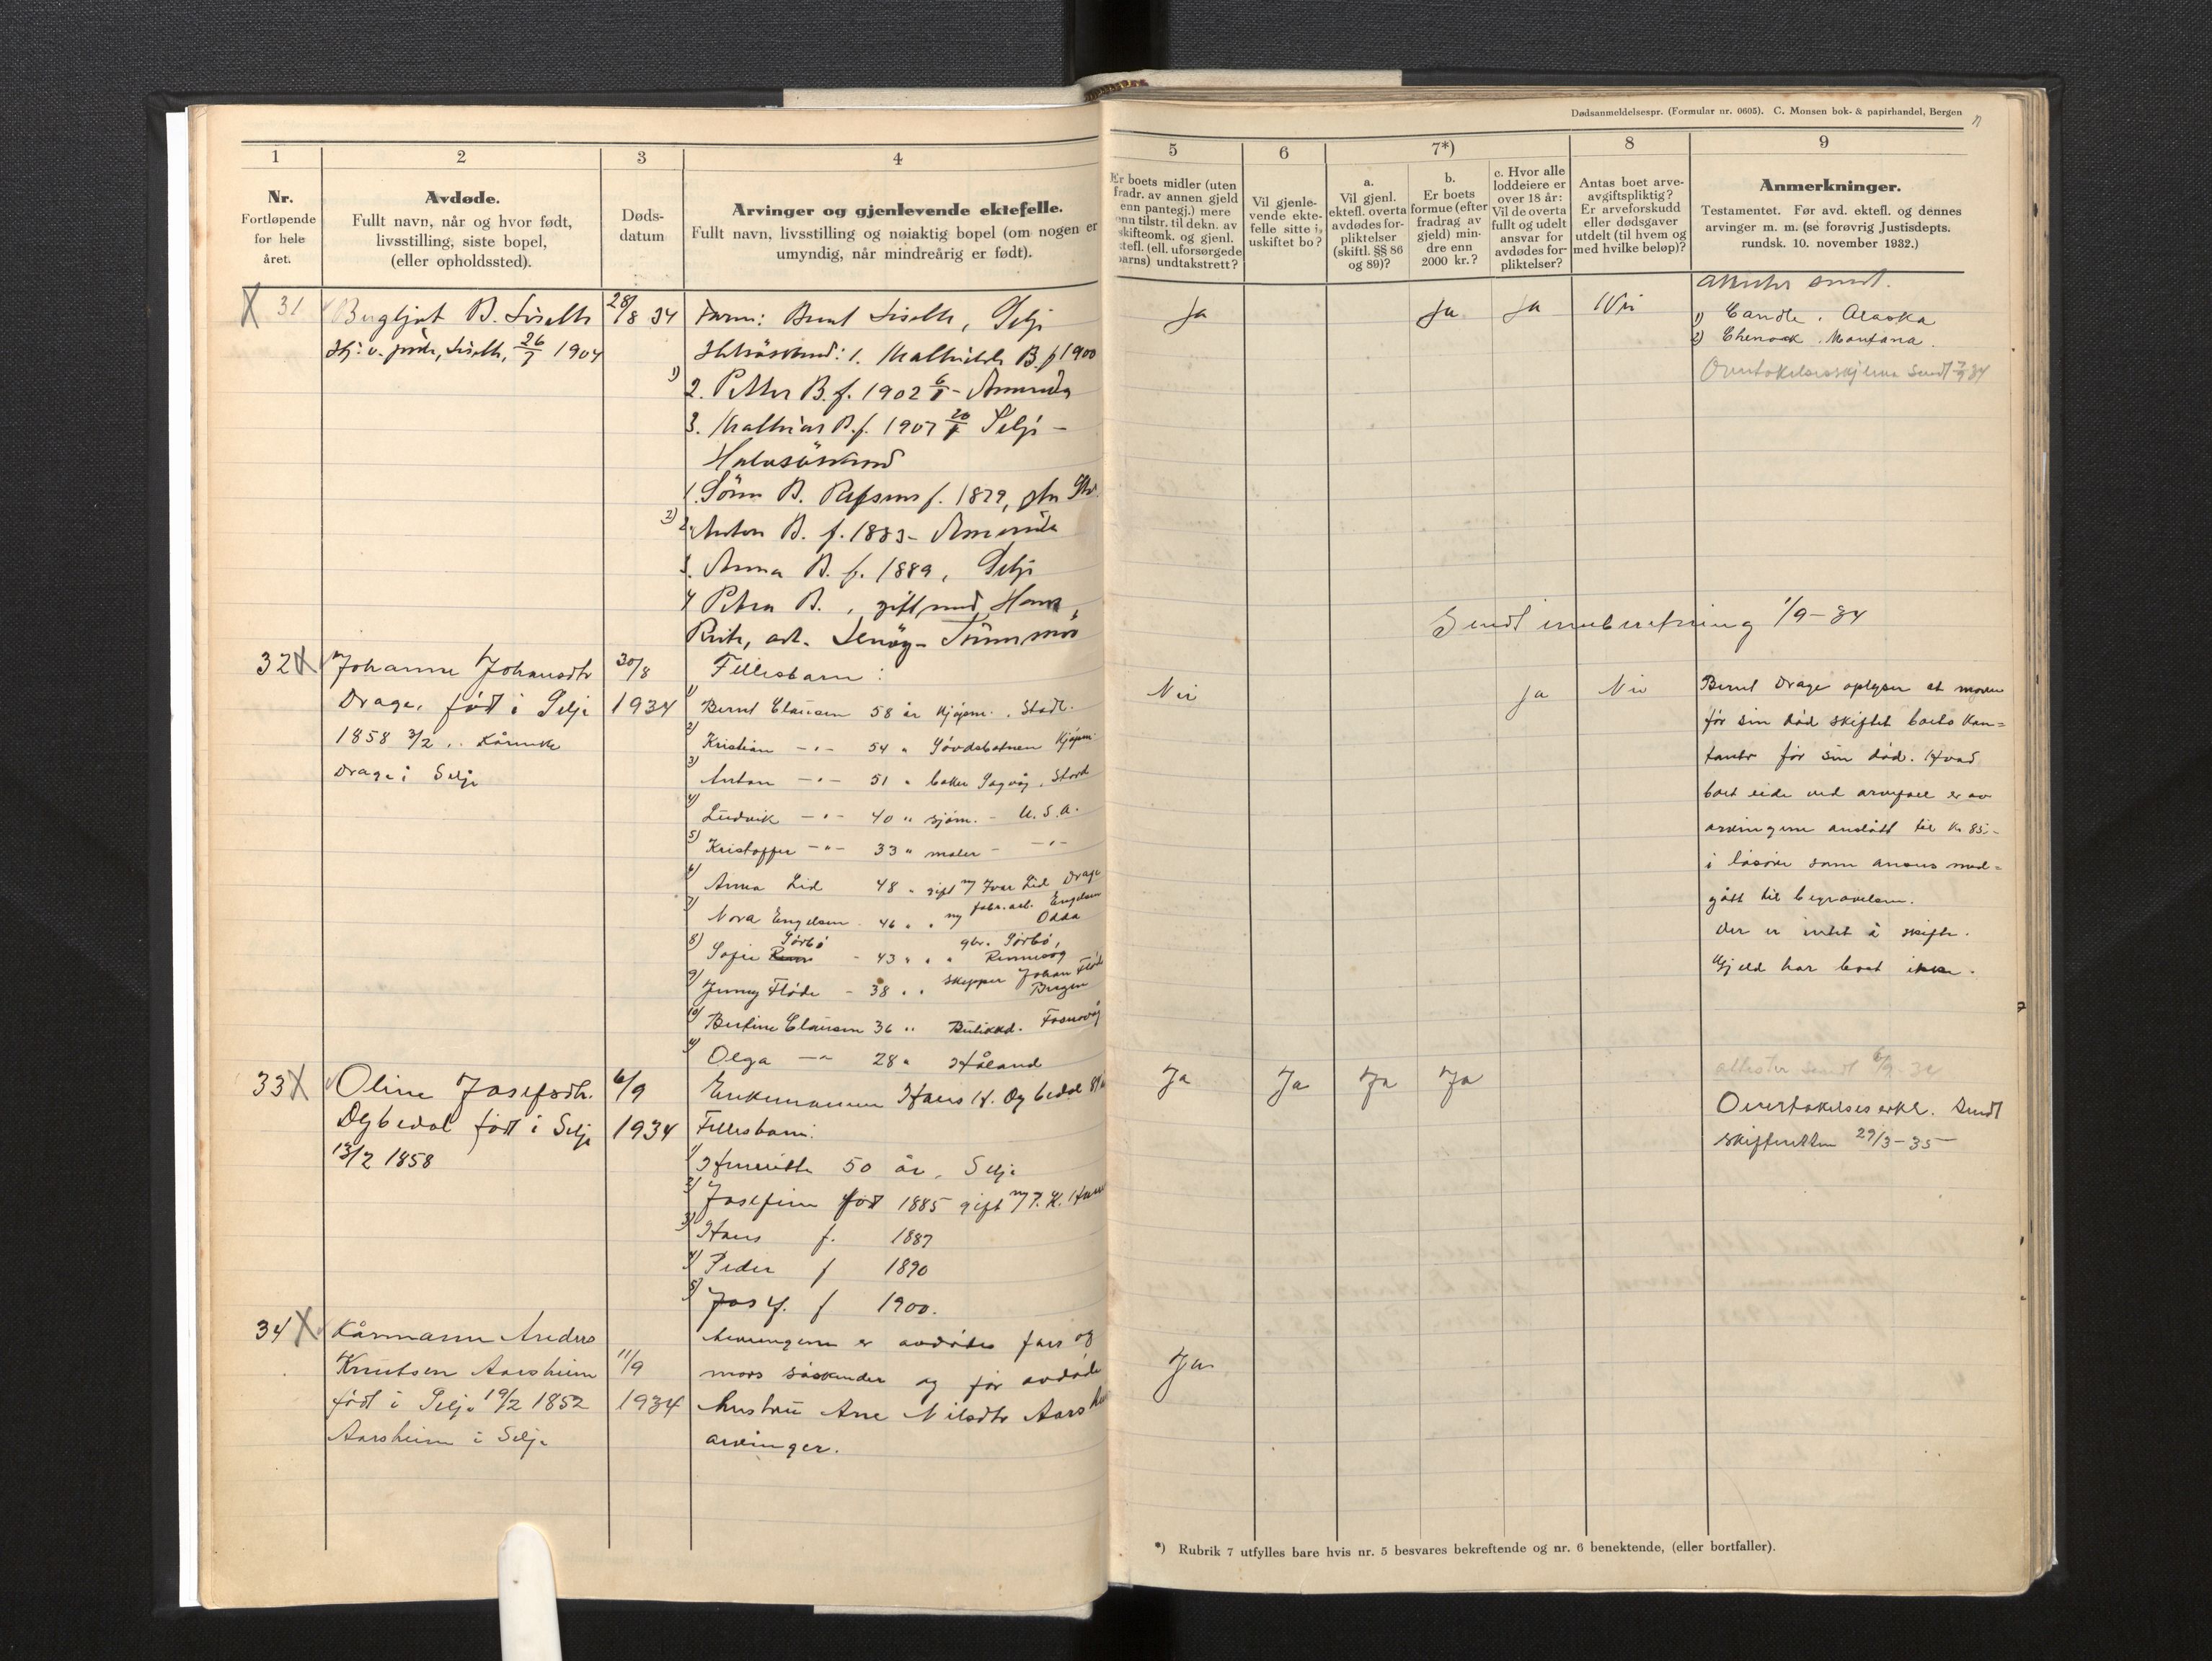 Dødsanmeldelsespr. (Formular nr. 0605). C. Monsen bok- & papirhandel, Bergen
1
2
3
4
5
6
7*)
8
9
Nr.
Fortløpende
for hele
året.
Avdøde.
Fullt navn, når og hvor født,
livsstilling, siste bopel,
(eller opholdssted).
Døds-
datum
Arvinger og gjenlevende ektefelle.
Fullt navn, livsstilling og nøiaktig bopel (om nogen er
umyndig, når mindreårig er født).
Er boets midler (uten
fradr. av annen gjeld
enn pantegj.) mere
enn tilstr. til dekn. av
skifteomk. og gjenl.
ktefl. (ell. uforsørgede
barns) undtakstrett?
Vil gjenle-
vende ekte-
felle sitte i
uskiftet bo?
a.
Vil gjenl.
ektefl. overta
avdødes for-
pliktelser
(skiftl. §§ 86
og 89)?
b.
Er boets
formue (efter
fradrag av
gjeld) min-
dre enn
2000 kr.?
c. Hvor alle
loddeiere er
over 18 år:
Vil de overta
fullt og udelt
ansvar for
avdødes for-
pliktelser?
Antas boet arve-
avgiftspliktig?
Er arveforskudd
eller dødsgaver
utdelt (til hvem og
med hvilke beløp)?
Anmerkninger.
Testamentet. Før avd. ektefl. og dennes
arvinger m. m. (se forøvrig Justisdepts.
rundsk. 10. november 1932.)
X 31
B. 
26/7 1904
28/8 34
Selje
1. B. f 1900
1) 2. Petter B. f. 1902
3. Mathias B. f. 1907 Selje -
Halvsøskend
1. B. f. 1879,
2) 2. Anton B. f. 1883 - Amerika
3. Anna B. f. 1889, Selje
4 Petra B., gift med Hans
Ja
Ja
Ja
Nei
sendt.
1) Candle, Alaska
2) Chenook, Montana.
sendt 34
Sendt innberetning 1/9-34
32 X
Johanne Johansdtr
Drage, født i Selje
1858 3/2, Kårenke
Drage i Selje
30/8
1934
Fellesbarn:
1) Bernt Clausen 58 år kjøpm., Stadt.
2) Kristian -"- 54 " kjøpm.
3) Anton -"- 51 " baker Sagvåg, Stord
4) Ludvik -"- 40 " sjøm. - U.S.A.
5) Kristoffer -"- 33 " maler - -"-
6) Anna Lid 48 " gift m/ Ivar Lid Drage
7) Nora Engelsen 46 " " m/ fabr.arb. Engelsen Odda
8) Sofie Sørbø - 43 " " " gbr. Sørbø, Rennesøy
9) Jenny Flöde - 38 " " skipper Johan Flöde Bergen
10) Bertine Clausen 36 " Butikkd. Fosnavåg
11) Olga -"- 28 " Håland
Nei
Ja
Nei
Bernt Drage oplyser at moren
før sin död skiftet boets kon-
tanter før sin död. Hvad
boet eide ved arvefall er av
arvingene anslått til kr 85,-
i løsøre som ansees med-
gått til begravelsen.
Der er intet å skifte.
Gjeld har boet ikke.
33 X
Oline Josefsdtr.
Dybedal født i Selje
13/2 1858
6/9
1934
Enkemannen Hans H. Dybedal
Fellesbarn.
1) Henriette 50 år, Selje
2) Josefine född 1885 gift m/
3) Hans f. 1887
4) Peder f 1890
5) Josef. f 1900.
Ja
Ja
Ja
Ja
attester sendt 6/9-34
Overtakelseserkl. sendt
skifteretten 29/3-35
34 X
Kårmann Anders
Knutsen Aarsheim
født i Selje 19/2 1852
Aarsheim i Selje
11/9
1934
Arvingene er avdødes fars og
mors søskender og før avdøde
hustru Ane Nilsdtr Aarsheim
arvinger.
Ja
*) Rubrik 7 utfylles bare hvis nr. 5 besvares bekreftende og nr. 6 benektende, (eller bortfaller).